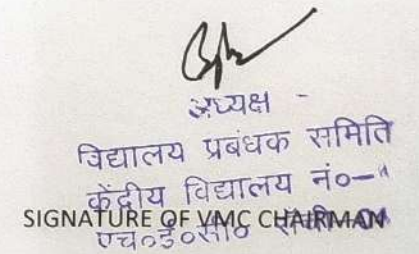 अध्यक्ष -
विद्यालय प्रबंधक समिति
केंद्रीय विद्यालय नं०-
SIGNATURE OF VMC CHAIRMAN
एच०ई०सी०